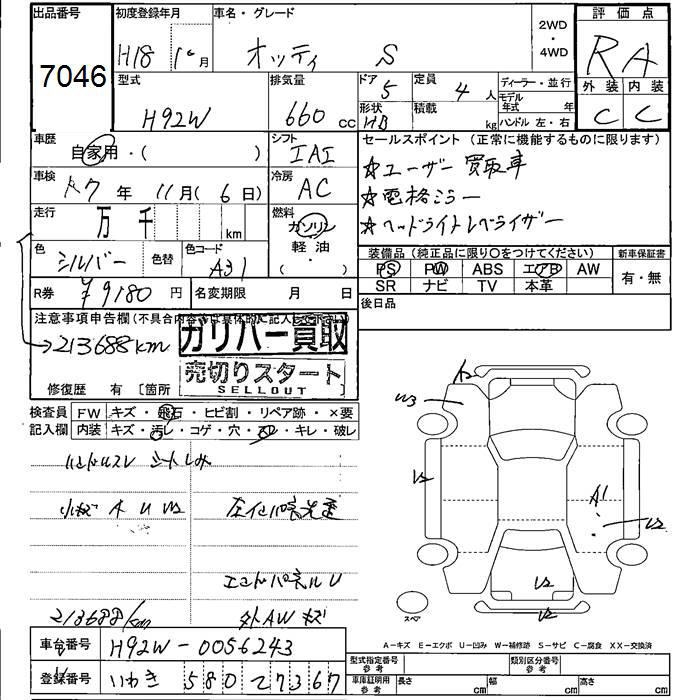 出品番号
7046
初度登録年月
H18 10月
車名・グレード
オッティ S
2WD
・
4WD
評価点
RA
外装 内装
C C
型式
H92W
排気量
660 cc
ドア
5
形状
HB
定員
4人
積載
kg
ディーラー・並行
モデル年式 年
ハンドル 左・右
車歴
自家用・( )
シフト
IAI
セールスポイント (正常に機能するものに限ります)
☆ユーザー買取車
☆電格ミラー
☆ヘッドライトレベライザー
車検
R7年 11月(6日)
冷房
AC
走行
万 千 km
燃料
ガソリン
軽油
( ・ )
色
シルバー
色替
色コード
A31
装備品 (純正品に限り〇をつけてください)
PS PW ABS エアB AW
SR ナビ TV 本革
新車保証書
有・無
R券
¥9180 円
名変期限 月 日
後日品
注意事項申告欄 (不具合内容等は具体的に記入して下さい)
213688km
ガリバー買取
売切りスタート
SELLOUT
修復歴 有 [箇所
検査員記入欄
FW キズ・飛石・ヒビ割・リペア跡・×要
内装 キズ・汚レ・コゲ・穴・スレ・キレ・破レ
ハンドルスレ シートしみ
小キズ A U W2
エンドパネルU
213688km
外AWキズ
W3
A1
U2
U2
U2
U2
スペア
A−キズ E−エクボ U−凹み W−補修跡 S−サビ C−腐食 XX−交換済
車台番号
H92W-0056243
登録番号
いわき 580 い 7367
型式指定番号
参考
類別区分番号
参考
車庫証明用
参考
長さ cm
幅 cm
高さ cm